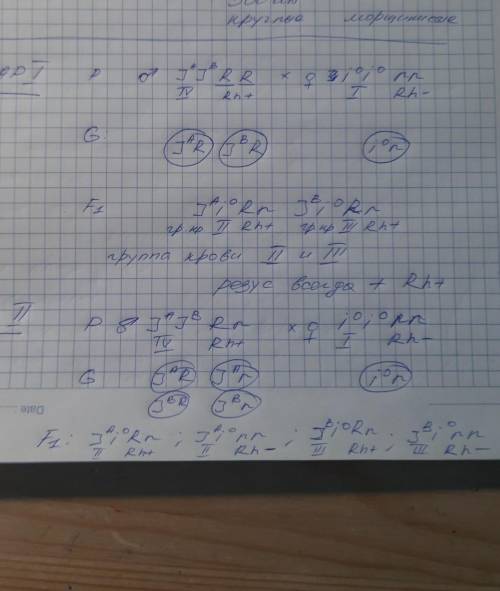 круглые морщинистые
I P ♂ J^A J^B R R × ♀ i^O i^O r r
IV Rh+ I Rh−
G: J^A R J^B R i^O r
F₁ J^A i^O R r J^B i^O R r
гр.кр II Rh+ гр.кр III Rh+
группа крови II и III
резус всегда + Rh+
II P ♂ J^A J^B R r × ♀ i^O i^O r r
IV Rh+ I Rh−
G J^A R J^A r i^O r
J^B R J^B r
Date:
F₁: J^A i^O R r ; J^A i^O r r ; J^B i^O R r ; J^B i^O r r
II Rh+ II Rh− III Rh+ III Rh−